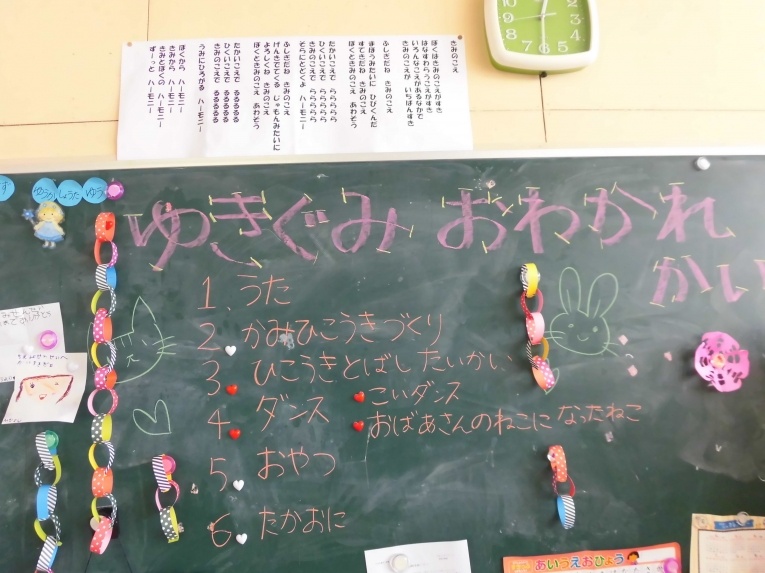 きみのこえ
ぼくはきみのこえがすき
はなすわらうこえがすき
いろんなこえがあるなかで
きみのこえが いちばんすき
ふしぎだね きみのこえ
まほうみたいに ひびくんだ
すてきだね きみのこえ
ぼくときみのこえ あわそう
たかいこえで ららららら
ひくいこえで ららららら
きみのこえで ららららら
そらにとどくよ ハーモニー
ふしぎだね きみのこえ
げんきでてくる じゅもんみたいに
よろしくね きみのこえ
ぼくときみのこえ あわそう
たかいこえで るるるるる
ひくいこえで るるるるる
きみのこえで るるるるる
うみにひろがる ハーモニー
ぼくから ハーモニー
きみから ハーモニー
きみとぼくの ハーモニー
ずーっと ハーモニー
ゆきぐみ おわかれ
かい
1. うた
2. かみひこうきづくり
3. ひこうきとばしたいかい
4. ダンス こいダンス
おばあさんのねこになったねこ
5. おやつ
6. たかおに
あいうえおひょう